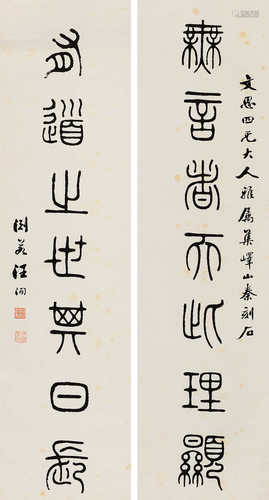 文恩四兄大人雅属集嶧山秦刻石
無言者而此理顯
有道之世其日長
淵若汪洵